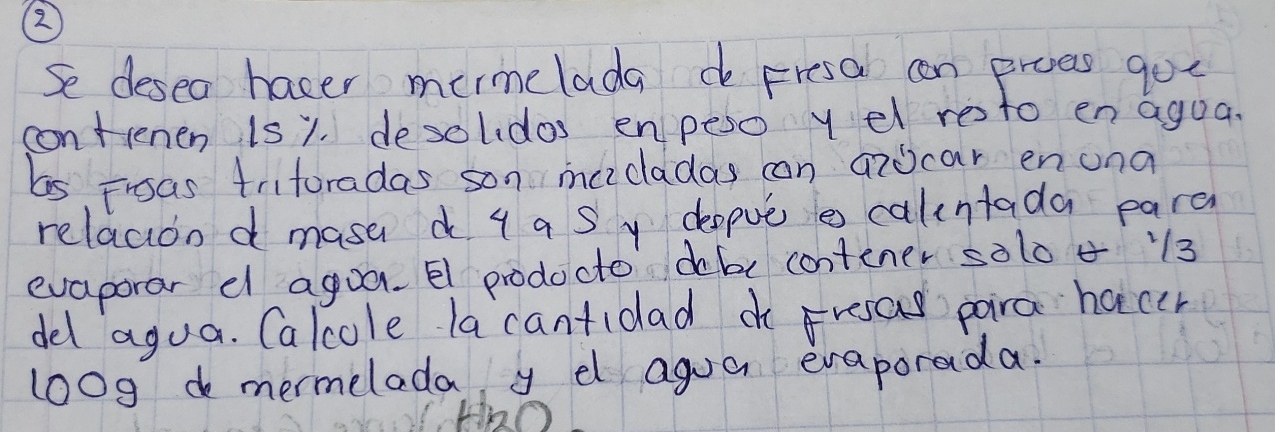 2
Se desea hacer mermelada de Fresa con fresas que
contienen 15 %. desolidos en peso y el resto en agua.
las Fresas trituradas son mezcladas con azúcar en una
relación d masa de 4 a 5 y despué es calentada para
evaporar el agua. El producto debe contener solo 1/3
del agua. Calcule la cantidad de Fresas para hacer
100g de mermelada y el agua evaporada.
H2O